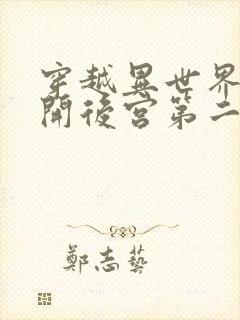 穿越異世界
開後宮第二
鄭志藝